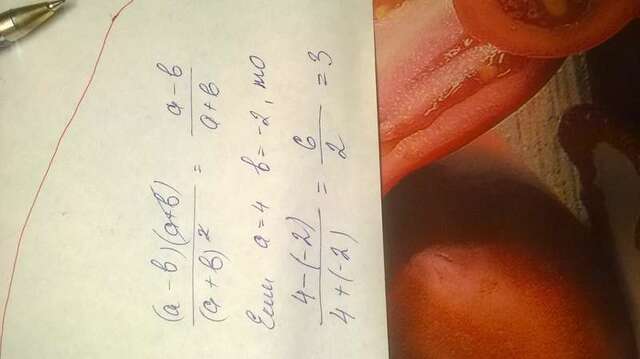 (a - b)(a+b) / (a + b)² = a - b / a + b
Если a = 4 b = -2, то
4 - (-2) / 4 + (-2) = 6 / 2 = 3